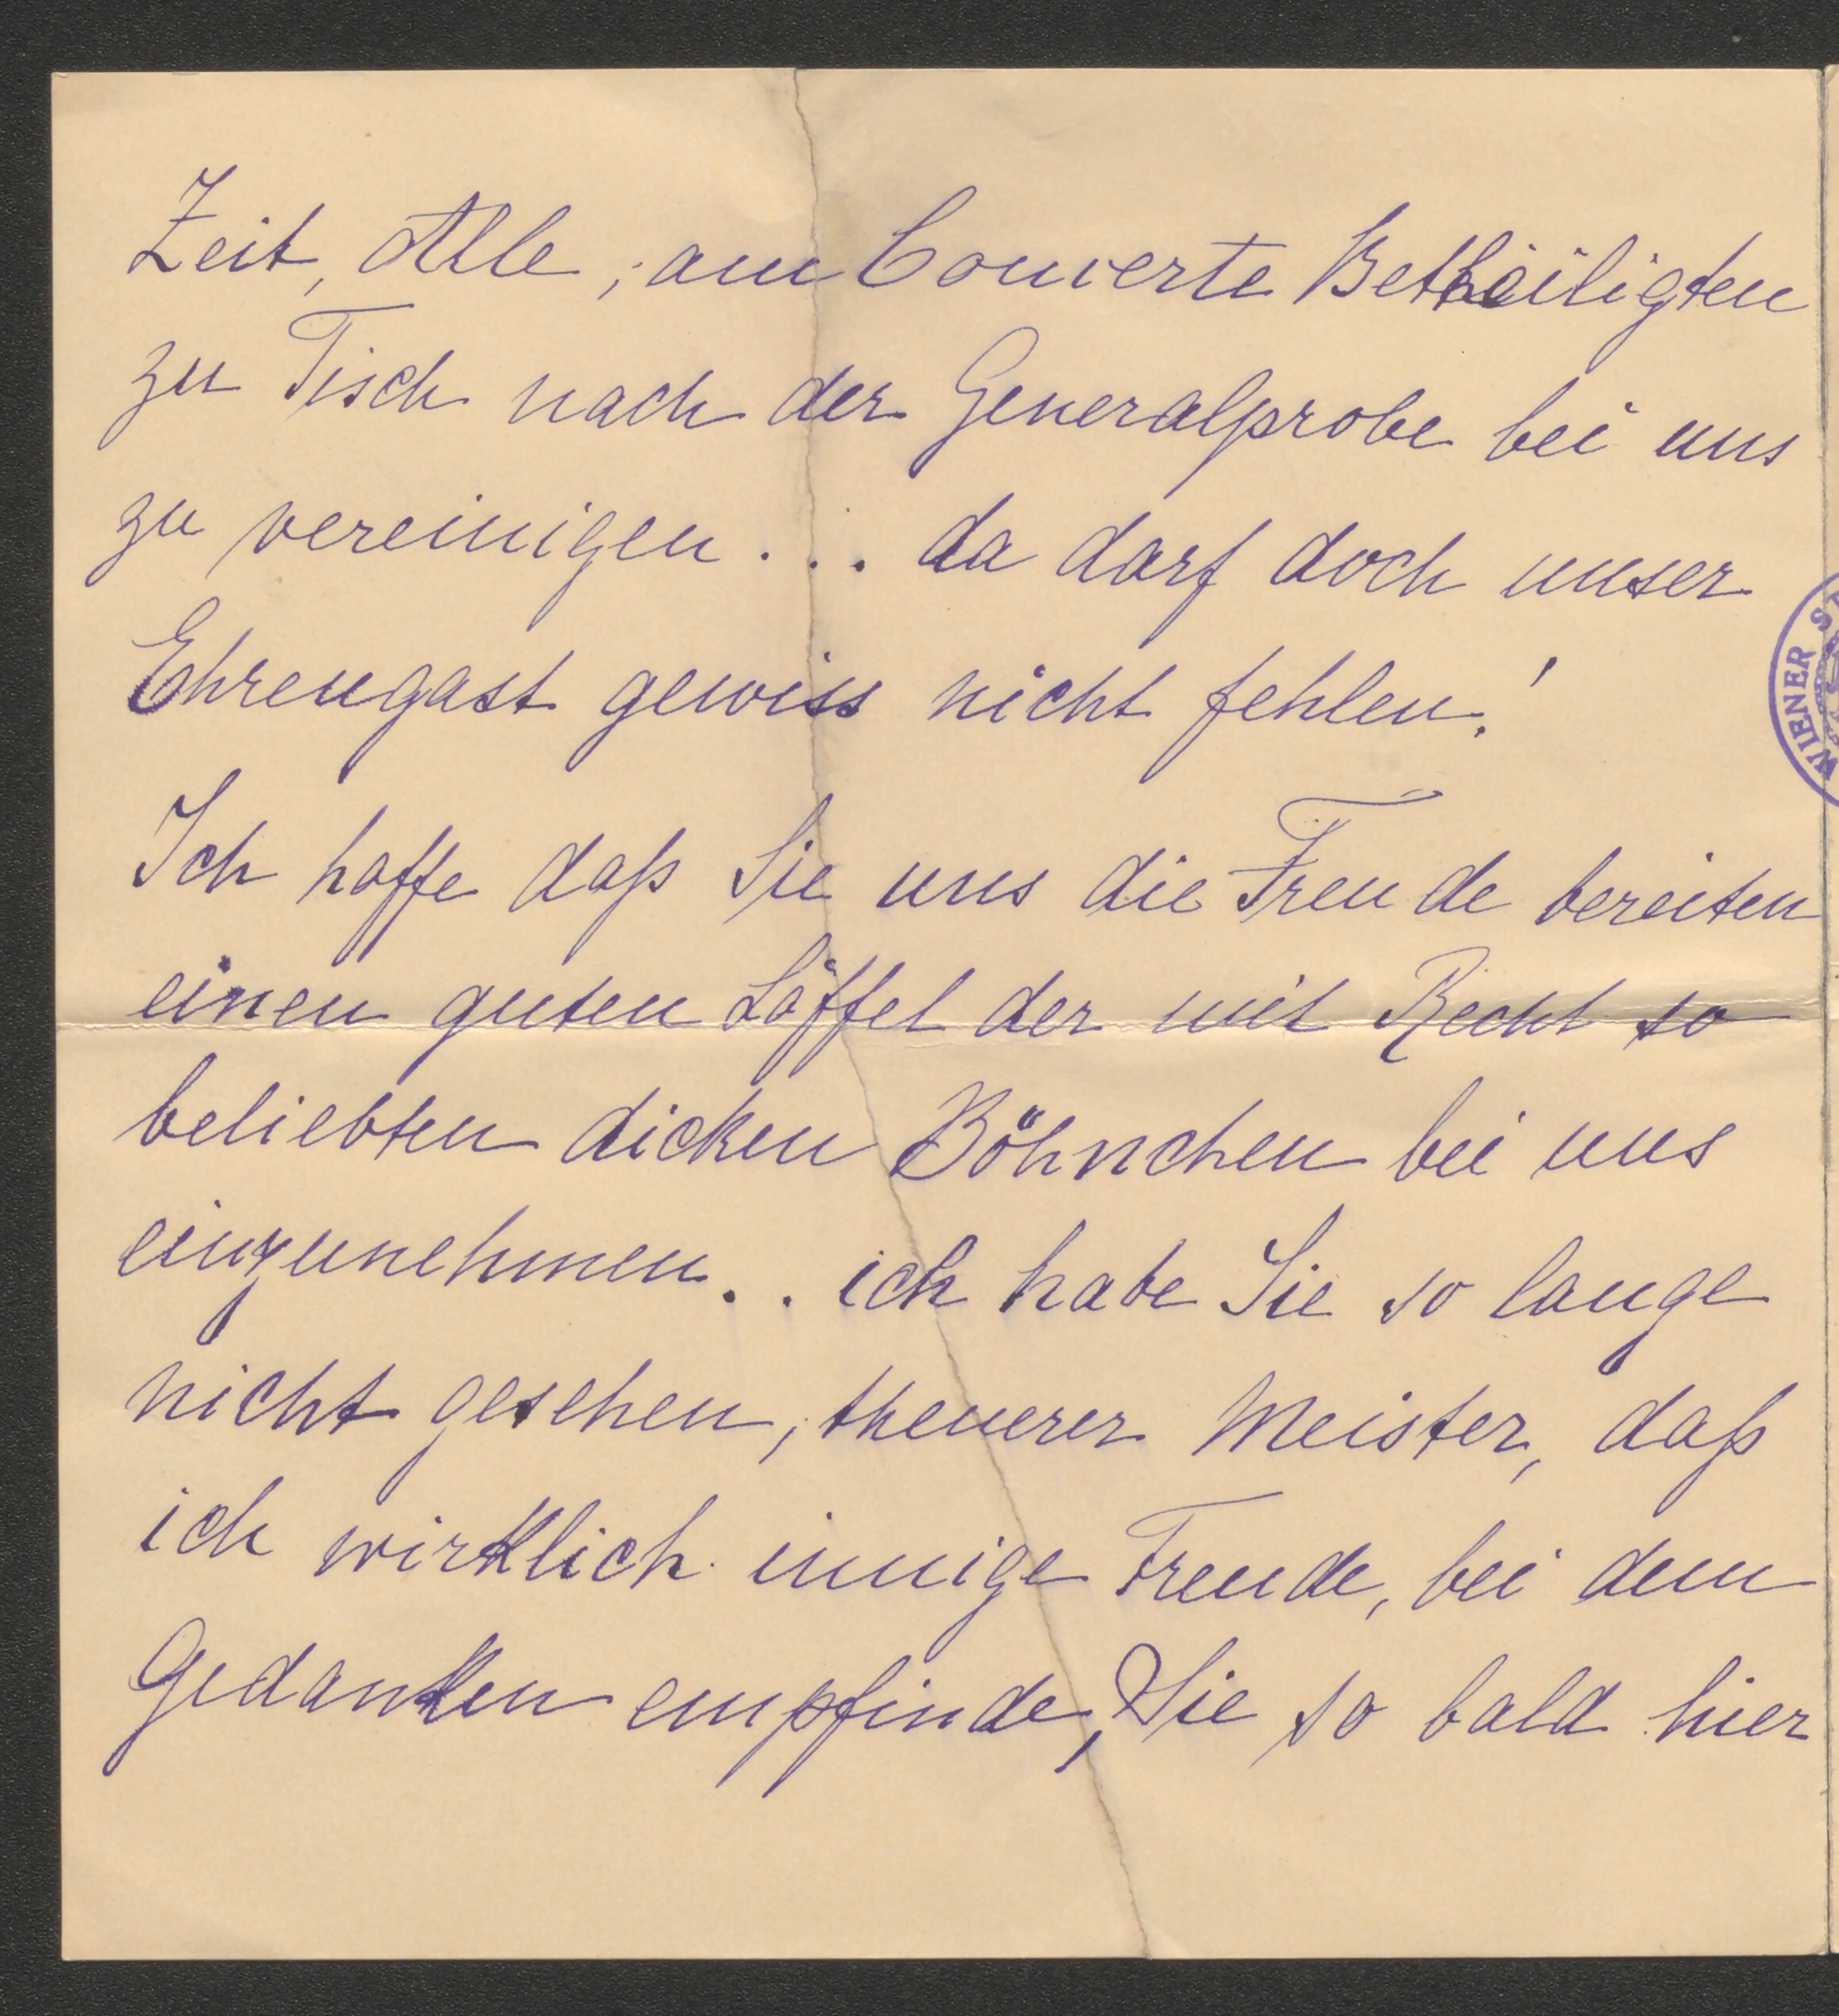 Zeit, Alle, am Conzerte Betheiligten
zu Tisch nach der Generalprobe bei uns
zu vereinigen... da darf doch unser
Ehrengast gewiss nicht fehlen!
Ich hoffe daß Sie uns die Freude bereiten
einen guten Löffel der mit Recht so
beliebten dicken Böhnchen bei uns
einzunehmen.. ich habe Sie so lange
nicht gesehen, theurer Meister, daß
ich wirklich innige Freude, bei dem
Gedanken empfinde, Sie so bald hier
WIENER